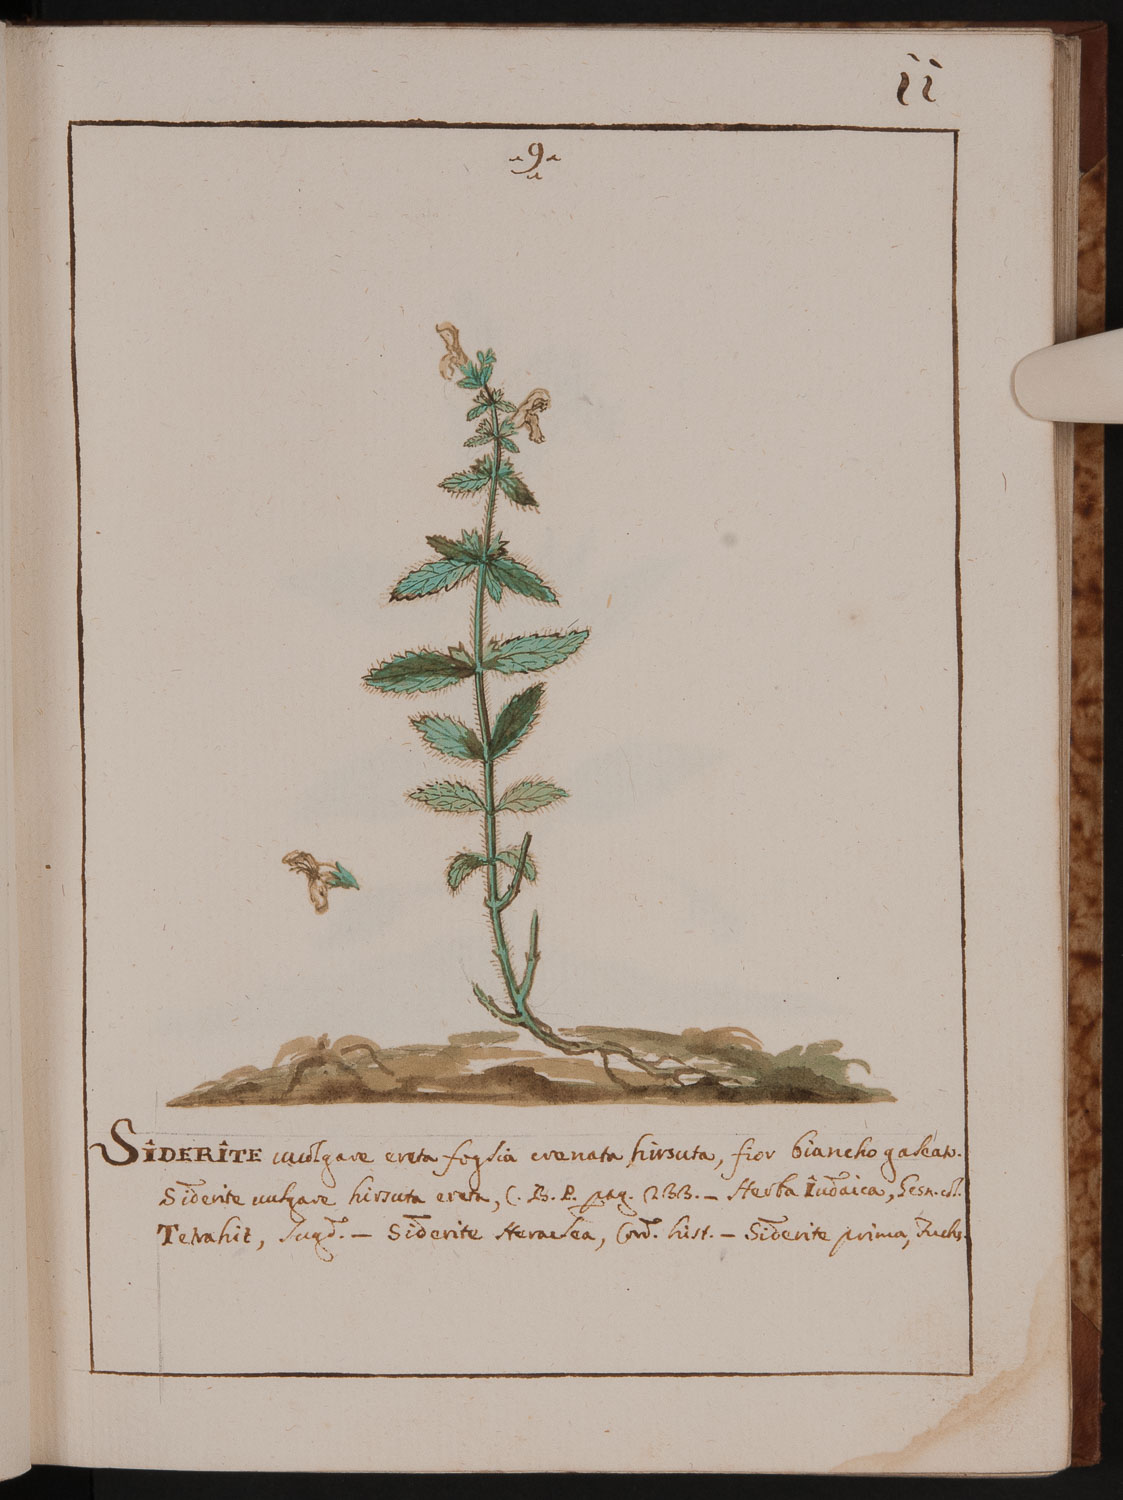 11
9
SIDERITE vuolgare ereta foglia crenata hirsuta, fior biancho galeato.
Siderite vulgare hirsuta ereta, C. B. P. pag. 233. – Herba Iudaica, Gesn. col.
Tetrahit, Lugd. – Siderite Heraclea, Cord. hist. – Siderite prima, Fuchs.